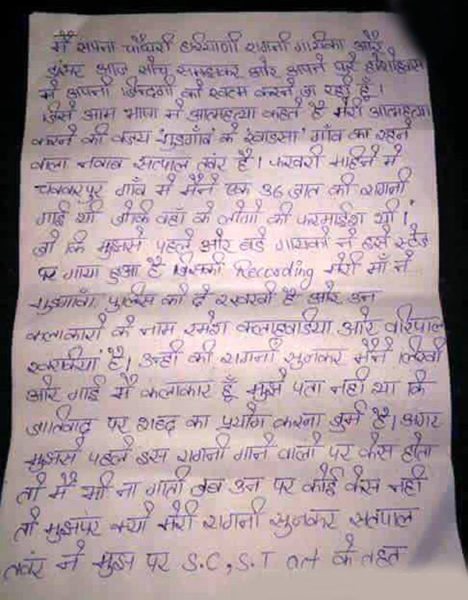 मैं सपना चौधरी हरियाणवी रागनी गायीका और
डांसर आज सोच समझकर और अपने पूरे होशोहवास
में अपनी जिन्दगी को खत्म करने जा रही हूँ।
जिसे आम भाषा में आत्महत्या कहते है मेरी आत्महत्या
करने की वजय गुडगाँव के खांडसा गाँव का रहने
वाला नवाब सतपाल तंवर है। फरवरी माहिने में
चक्करपुर गाँव में मैंने एक 36 जात की रागनी
गाई थी जोकि वहाँ के लोगो की फरमाईश थी।
जो कि मुझसे पहले और बडे गायको ने इसे स्टेज
पर गाया हुआ है जिसकी Recording मेरी माँ ने
गुडगाँवा पुलिस को दे रखखी है और उन
कलाकारो के नाम रमेश कलाहवाडिया और वीरपाल
खरकीया है। उन्ही की रागनी सुनकर मैंने लिखी
और गाई मैं कलाकार हूँ मुझे पता नहीं था कि
जातिवाद पर शब्द का प्रयोग करना जुर्म है। अगर
मुझसे पहले इस रागनी गाने वालो पर केस होता
तो मैं भी ना गाती जब उन पर कोई केस नहीं
तो मुझपर क्यों मेरी रागनी सुनकर सतपाल
तवंर ने मुझ पर S.C, S.T act के तहत